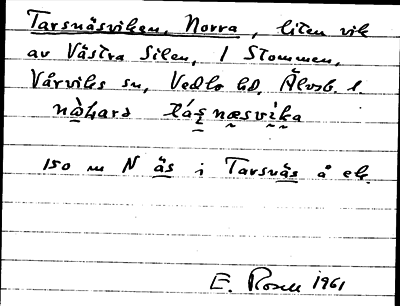 Tarsnäsviken, Norra, liten vik
av Västra Silen, I Stommen,
Vårviks sn, Vedbo hd, Älvsb. l.
150 m N äs i Tarsnäs å ek.
E. Rosell 1961